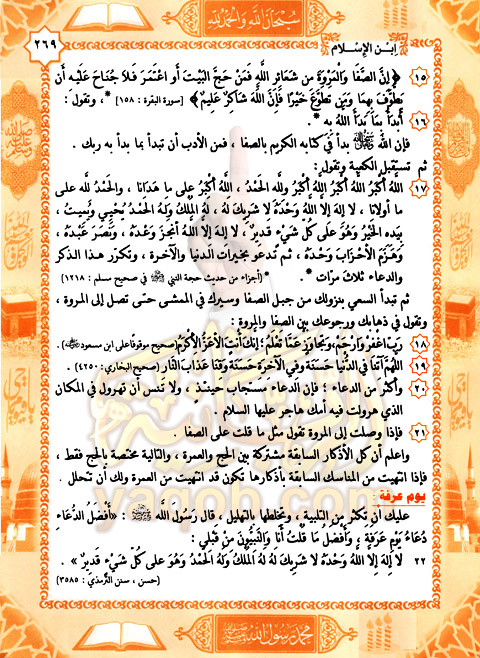 سبحان الله والحمد لله
٢٦٩
أين الإسلام
١٥ ﴿ إِنَّ الصَّفَا وَالْمَرْوَةَ مِن شَعَائِرِ اللَّهِ فَمَنْ حَجَّ الْبَيْتَ أَوِ اعْتَمَرَ فَلَا جُنَاحَ عَلَيْهِ أَن
يَطَّوَّفَ بِهِمَا وَمَن تَطَوَّعَ خَيْرًا فَإِنَّ اللَّهَ شَاكِرٌ عَلِيمٌ ﴾ [سورة البقرة : ١٥٨] * ، وتقول :
١٦ أَبْدَأُ بِمَا بَدَأَ اللَّهُ بِهِ * .
فإن الله ﷻ بدأ في كتابه الكريم بالصفا ، فمن الأدب أن تبدأ بما بدأ به ربك .
ثم تستقبل الكعبة وتقول :
١٧ اللهُ أَكْبَرُ اللهُ أَكْبَرُ اللهُ أَكْبَرُ وللهِ الحَمْدُ ، اللهُ أَكْبَرُ على ما هَدَانَا ، والحَمْدُ لله على
ما أولانا ، لا إلهَ إلا اللهُ وَحْدَهُ لا شَرِيكَ لَهُ ، لهُ المُلْكُ وَلهُ الحَمْدُ يُحْيِي وَيُمِيتُ ،
بِيَدِهِ الخَيْرُ وَهُوَ عَلَى كُلِّ شَيْءٍ قَدِيرٌ ، لا إلهَ إلا اللهُ أَنْجَزَ وَعْدَهُ ، وَنَصَرَ عَبْدَهُ ،
وَهَزَمَ الأَحْزَابَ وَحْدَهُ ، ثم تدعو بخيرات الدنيا والآخرة ، وتكرّر هذا الذكر
والدعاء ثلاث مرّات * . *(أجزاء من حديث حجة النبي ﷺ في صحيح مسلم : ١٢١٨)
ثم تبدأ السعي بنزولك من جبل الصفا وسيرك في الممشى حتى تصل إلى المروة ،
وتقول في ذهابك ورجوعك بين الصفا والمروة :
١٨ رَبِّ اغْفِرْ وَارْحَمْ، وَتَجَاوَزْ عَمَّا تَعْلَمُ ؛ إِنَّكَ أَنْتَ الأَعَزُّ الأَكْرَمُ (صحيح موقوفاً على ابن مسعود).
١٩ اللَّهُمَّ آتِنَا فِي الدُّنْيَا حَسَنَةً وَفِي الآخِرَةِ حَسَنَةً وَقِنَا عَذَابَ النَّارِ (صحيح البخاري: ٤٢٥٠).
٢٠ وأكثر من الدعاء ؛ فإن الدعاء مستجاب حينئذ ، ولا تَنس أن تهرول في المكان
الذي هرولت فيه أمك هاجر عليها السلام .
٢١ فإذا وصلت إلى المروة تقول مثل ما قلت على الصفا .
واعلم أن كل الأذكار السابقة مشتركة بين الحج والعمرة ، والتالية مختصة بالحج فقط ،
فإذا انتهيت من المناسك السابقة بأذكارها تكون قد انتهيت من العمرة ولك أن تتحلل .
يوم عرفة :
عليك أن تكثر من التلبية ، وتخلطها بالتهليل ، قال رَسول الله ﷺ : «أَفْضَلُ الدُّعَاءِ
دُعَاءُ يَوْمِ عَرَفَةَ ، وَأَفْضَلُ مَا قُلْتُ أَنَا وَالنَّبِيُّونَ مِنْ قَبْلِي :
٢٢ لا إِلهَ إِلا اللهُ وَحْدَهُ لا شَرِيكَ لَهُ لَهُ المُلْكُ وَلَهُ الحَمْدُ وَهُوَ عَلَى كُلِّ شَيْءٍ قَدِيرٌ » .
(حسن ، سنن التِّرمذيّ : ٣٥٨٥)
محمد رسول الله ﷺ
yaqob.com